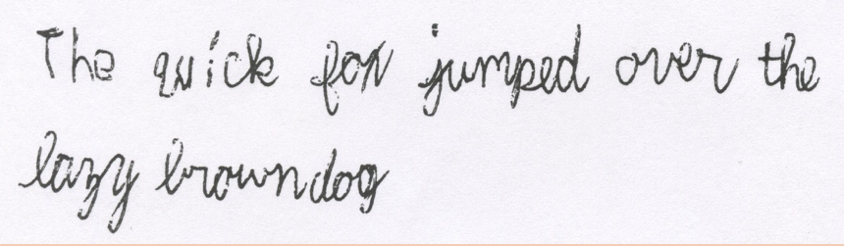 The quick fox jumped over the
lazy browndog